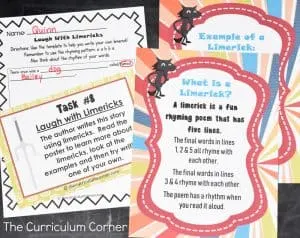 Name Quinn
Laugh With Limericks
Directions: Use the template to help you write your own limerick!
Remember to use the rhyming pattern: a a b b a
Also think about the rhythm of your words.
There once was a dog
Bailey
Task #8
Laugh with Limericks
The author writes this story
using limericks. Read the
poster to learn more about
limericks, look at the
examples and then try writing
one of your own.
Example of a
Limerick:
What is a
Limerick?
A limerick is a fun
rhyming poem that has
five lines.
The final words in lines
1, 2 & 5 all rhyme with
each other.
The final words in lines
3 & 4 rhyme with each
other.
The poem has a rhythm when
you read it aloud.
The Curriculum Corner